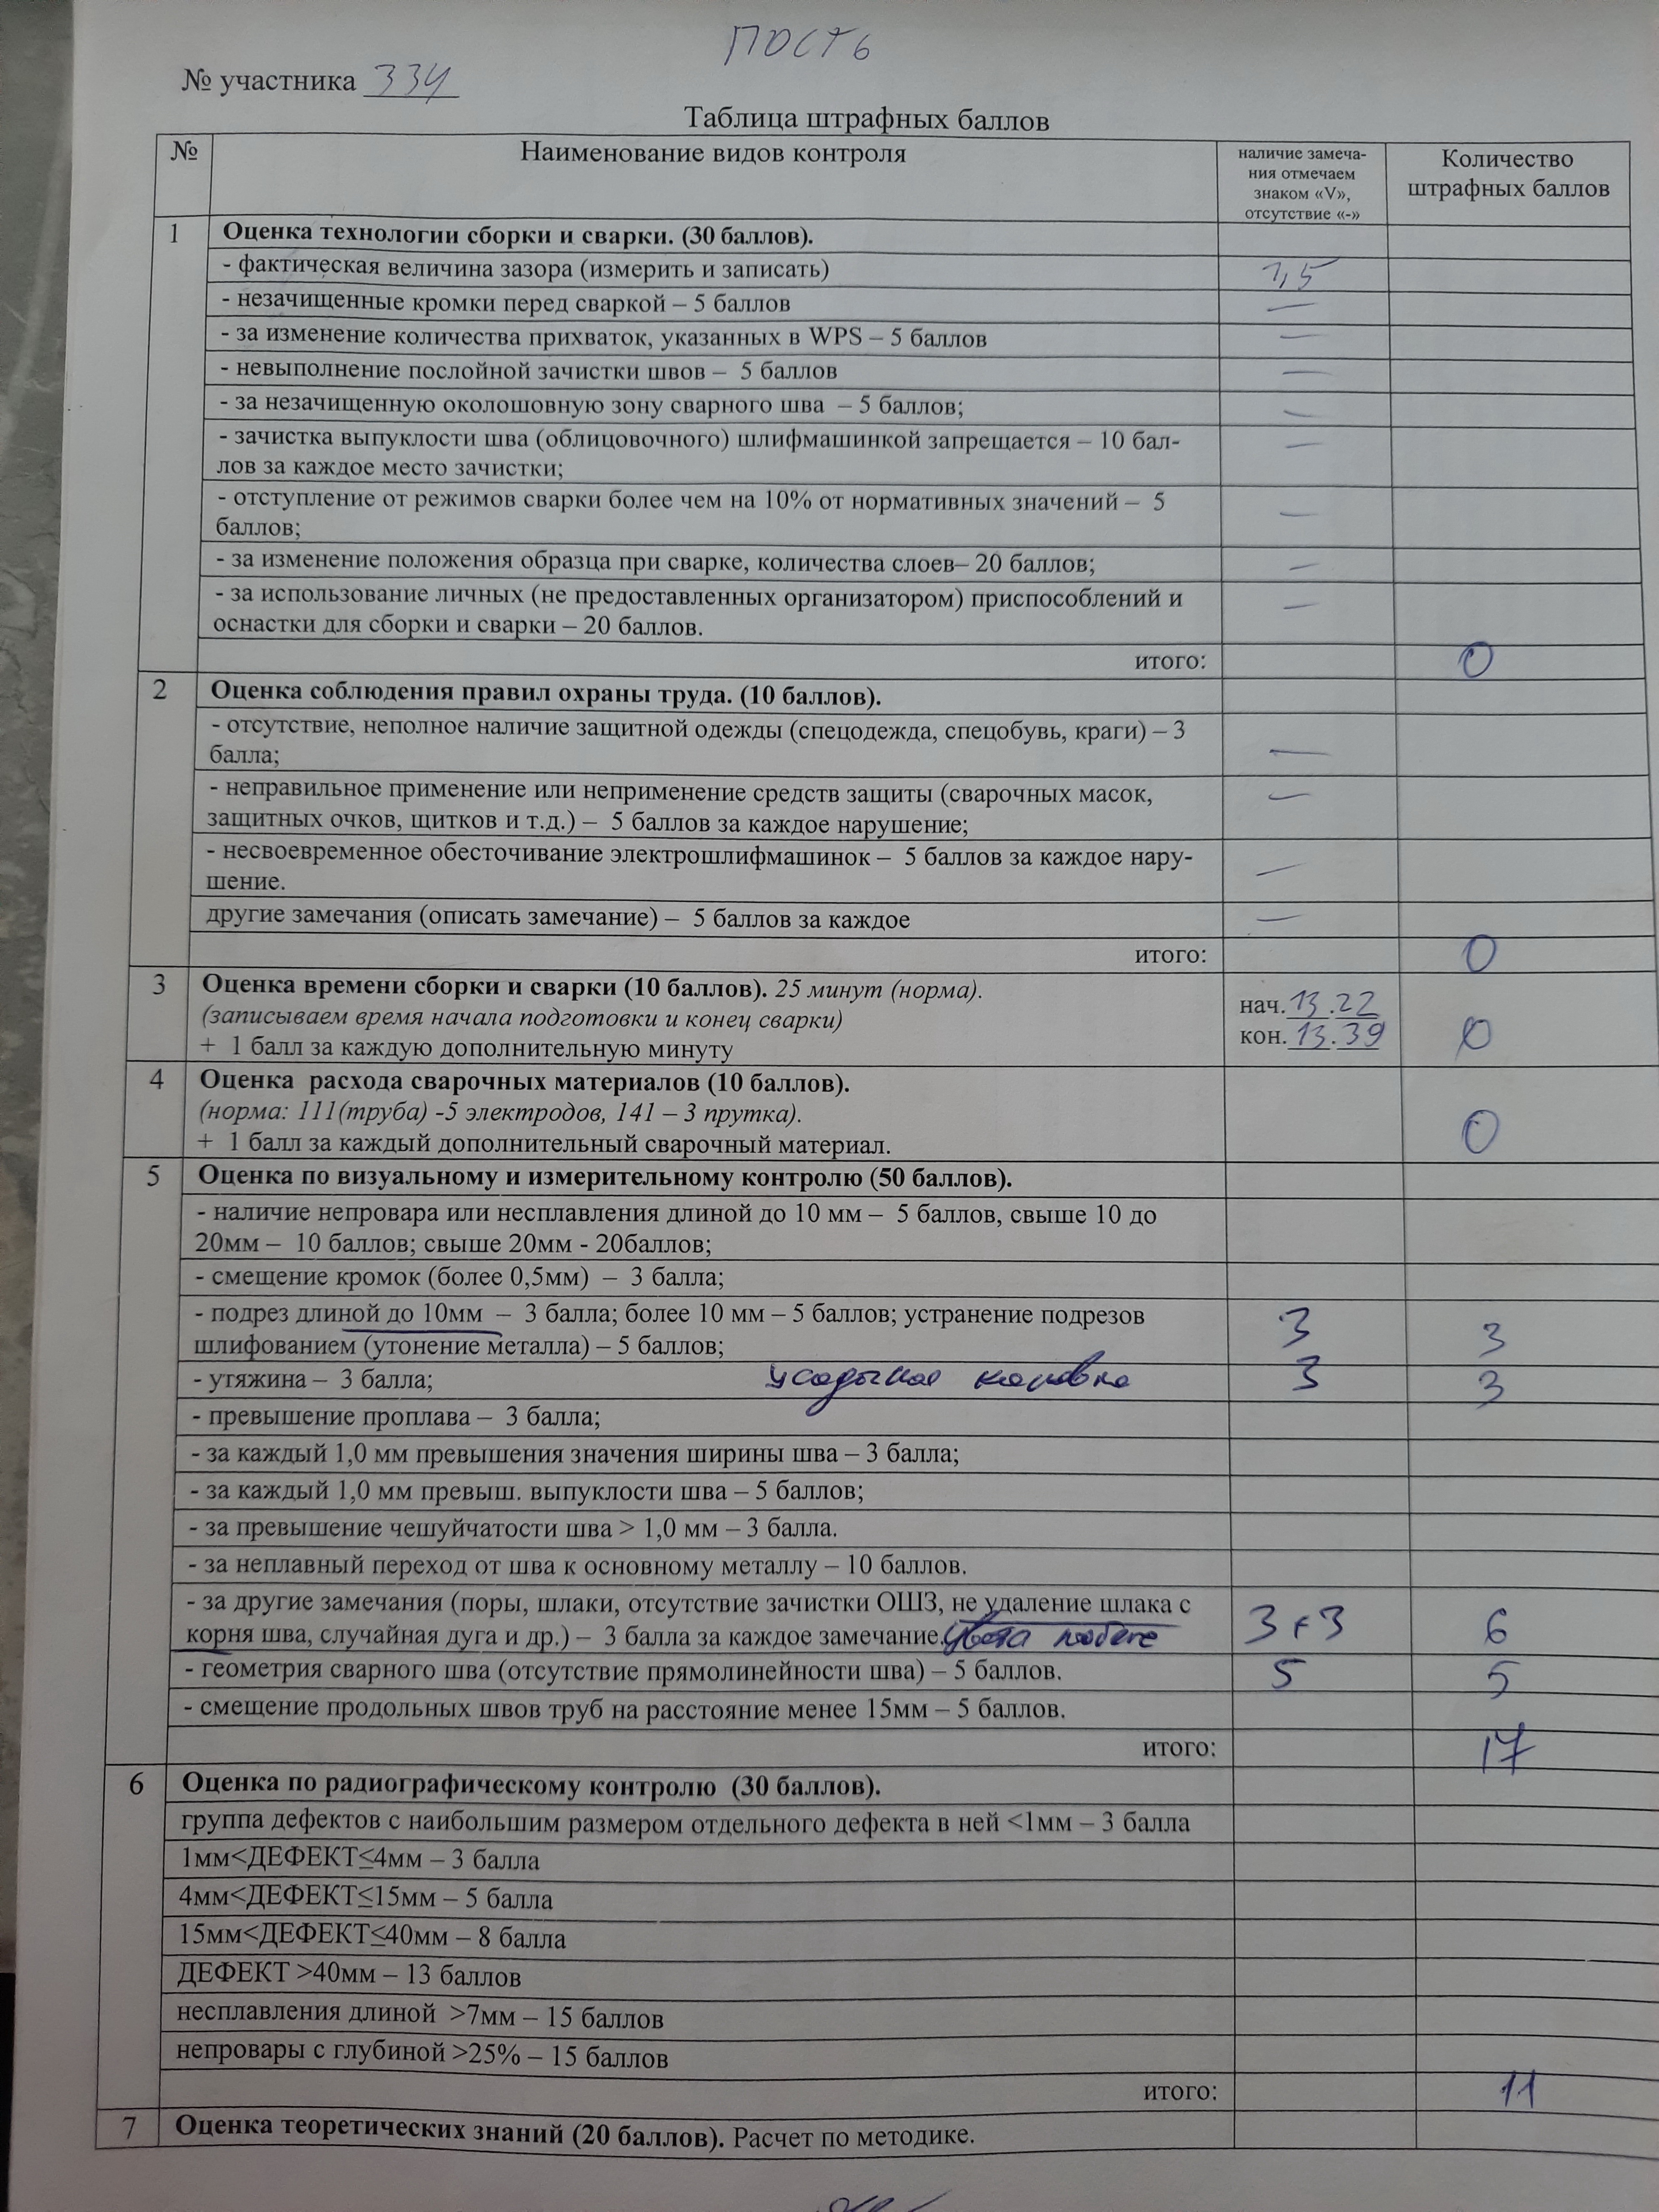 ПОСТ 6
№ участника 334
Таблица штрафных баллов
№
Наименование видов контроля
наличие замеча-
ния отмечаем
знаком «V»,
отсутствие «-»
Количество
штрафных баллов
1
Оценка технологии сборки и сварки. (30 баллов).
- фактическая величина зазора (измерить и записать) 1,5
- незачищенные кромки перед сваркой – 5 баллов —
- за изменение количества прихваток, указанных в WPS – 5 баллов —
- невыполнение послойной зачистки швов – 5 баллов —
- за незачищенную околошовную зону сварного шва – 5 баллов; —
- зачистка выпуклости шва (облицовочного) шлифмашинкой запрещается – 10 бал- —
лов за каждое место зачистки;
- отступление от режимов сварки более чем на 10% от нормативных значений – 5 —
баллов;
- за изменение положения образца при сварке, количества слоев– 20 баллов; —
- за использование личных (не предоставленных организатором) приспособлений и —
оснастки для сборки и сварки – 20 баллов.
итого: 0
2
Оценка соблюдения правил охраны труда. (10 баллов).
- отсутствие, неполное наличие защитной одежды (спецодежда, спецобувь, краги) – 3 —
балла;
- неправильное применение или неприменение средств защиты (сварочных масок, —
защитных очков, щитков и т.д.) – 5 баллов за каждое нарушение;
- несвоевременное обесточивание электрошлифмашинок – 5 баллов за каждое нару- —
шение.
другие замечания (описать замечание) – 5 баллов за каждое —
итого: 0
3
Оценка времени сборки и сварки (10 баллов). 25 минут (норма). нач. 13.22
(записываем время начала подготовки и конец сварки) кон. 13.39 0
+ 1 балл за каждую дополнительную минуту
4
Оценка расхода сварочных материалов (10 баллов).
(норма: 111(труба) -5 электродов, 141 – 3 прутка). 0
+ 1 балл за каждый дополнительный сварочный материал.
5
Оценка по визуальному и измерительному контролю (50 баллов).
- наличие непровара или несплавления длиной до 10 мм – 5 баллов, свыше 10 до
20мм – 10 баллов; свыше 20мм - 20баллов;
- смещение кромок (более 0,5мм) – 3 балла;
- подрез длиной до 10мм – 3 балла; более 10 мм – 5 баллов; устранение подрезов 3 3
шлифованием (утонение металла) – 5 баллов;
- утяжина – 3 балла; 3 3
- превышение проплава – 3 балла;
- за каждый 1,0 мм превышения значения ширины шва – 3 балла;
- за каждый 1,0 мм превыш. выпуклости шва – 5 баллов;
- за превышение чешуйчатости шва > 1,0 мм – 3 балла.
- за неплавный переход от шва к основному металлу – 10 баллов.
- за другие замечания (поры, шлаки, отсутствие зачистки ОШЗ, не удаление шлака с 3+3 6
корня шва, случайная дуга и др.) – 3 балла за каждое замечание. цвета побеж
- геометрия сварного шва (отсутствие прямолинейности шва) – 5 баллов. 5 5
- смещение продольных швов труб на расстояние менее 15мм – 5 баллов.
итого: 17
6
Оценка по радиографическому контролю (30 баллов).
группа дефектов с наибольшим размером отдельного дефекта в ней <1мм – 3 балла
1мм<ДЕФЕКТ≤4мм – 3 балла
4мм<ДЕФЕКТ≤15мм – 5 балла
15мм<ДЕФЕКТ≤40мм – 8 балла
ДЕФЕКТ >40мм – 13 баллов
несплавления длиной >7мм – 15 баллов
непровары с глубиной >25% – 15 баллов
итого: 11
7
Оценка теоретических знаний (20 баллов). Расчет по методике.